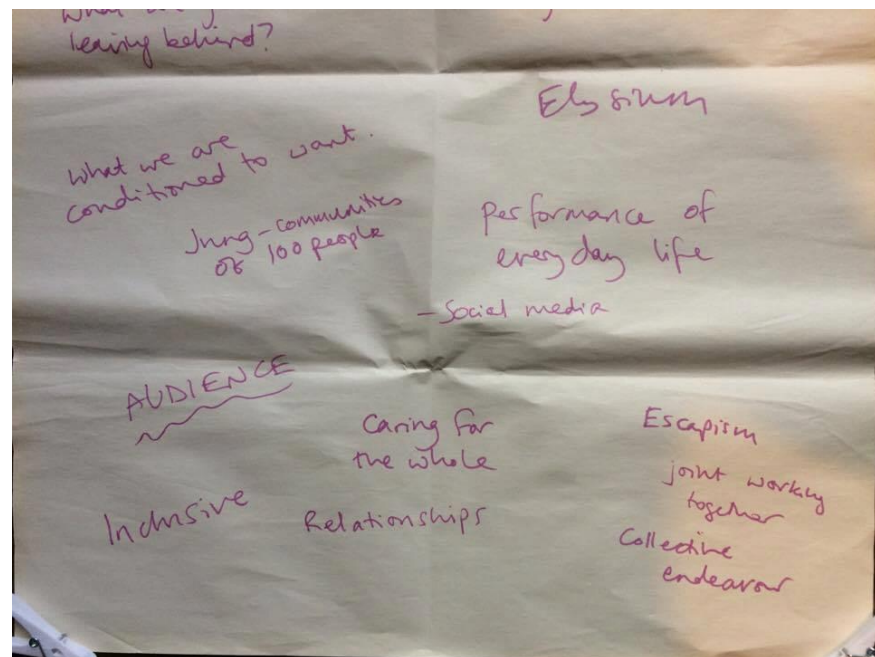 leaving behind?
Elysium
What we are
conditioned to want.
Jung - communities
of 100 people
performance of
everyday life
- Social media
AUDIENCE
Caring for
the whole
Escapism
joint working
together
Inclusive
Relationships
Collective
endeavour